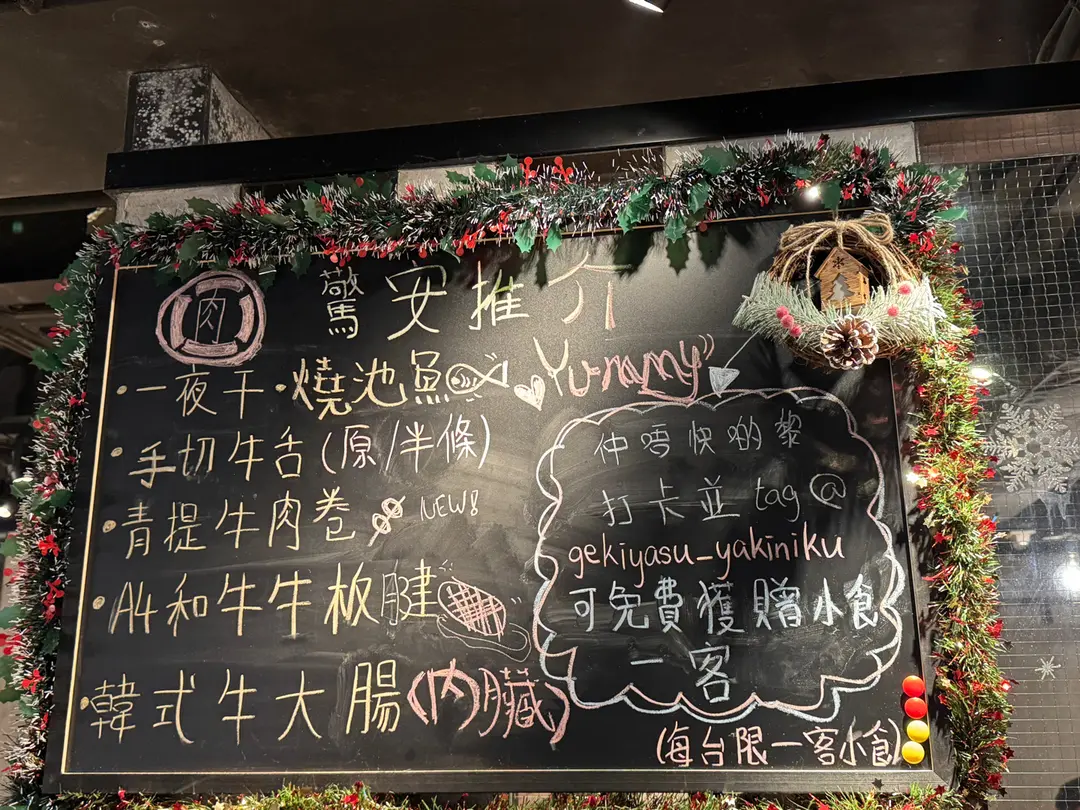 肉
驚安推介
・一夜干・燒池魚
Yummy"
・手切牛舌(原/半條)
・青提牛肉卷 NEW!
・A4和牛牛板腱
・韓式牛大腸(內臟)
仲唔快啲黎
打卡並 tag @
gekiyasu_yakiniku
可免費獲贈小食
一客
(每台限一客小食)